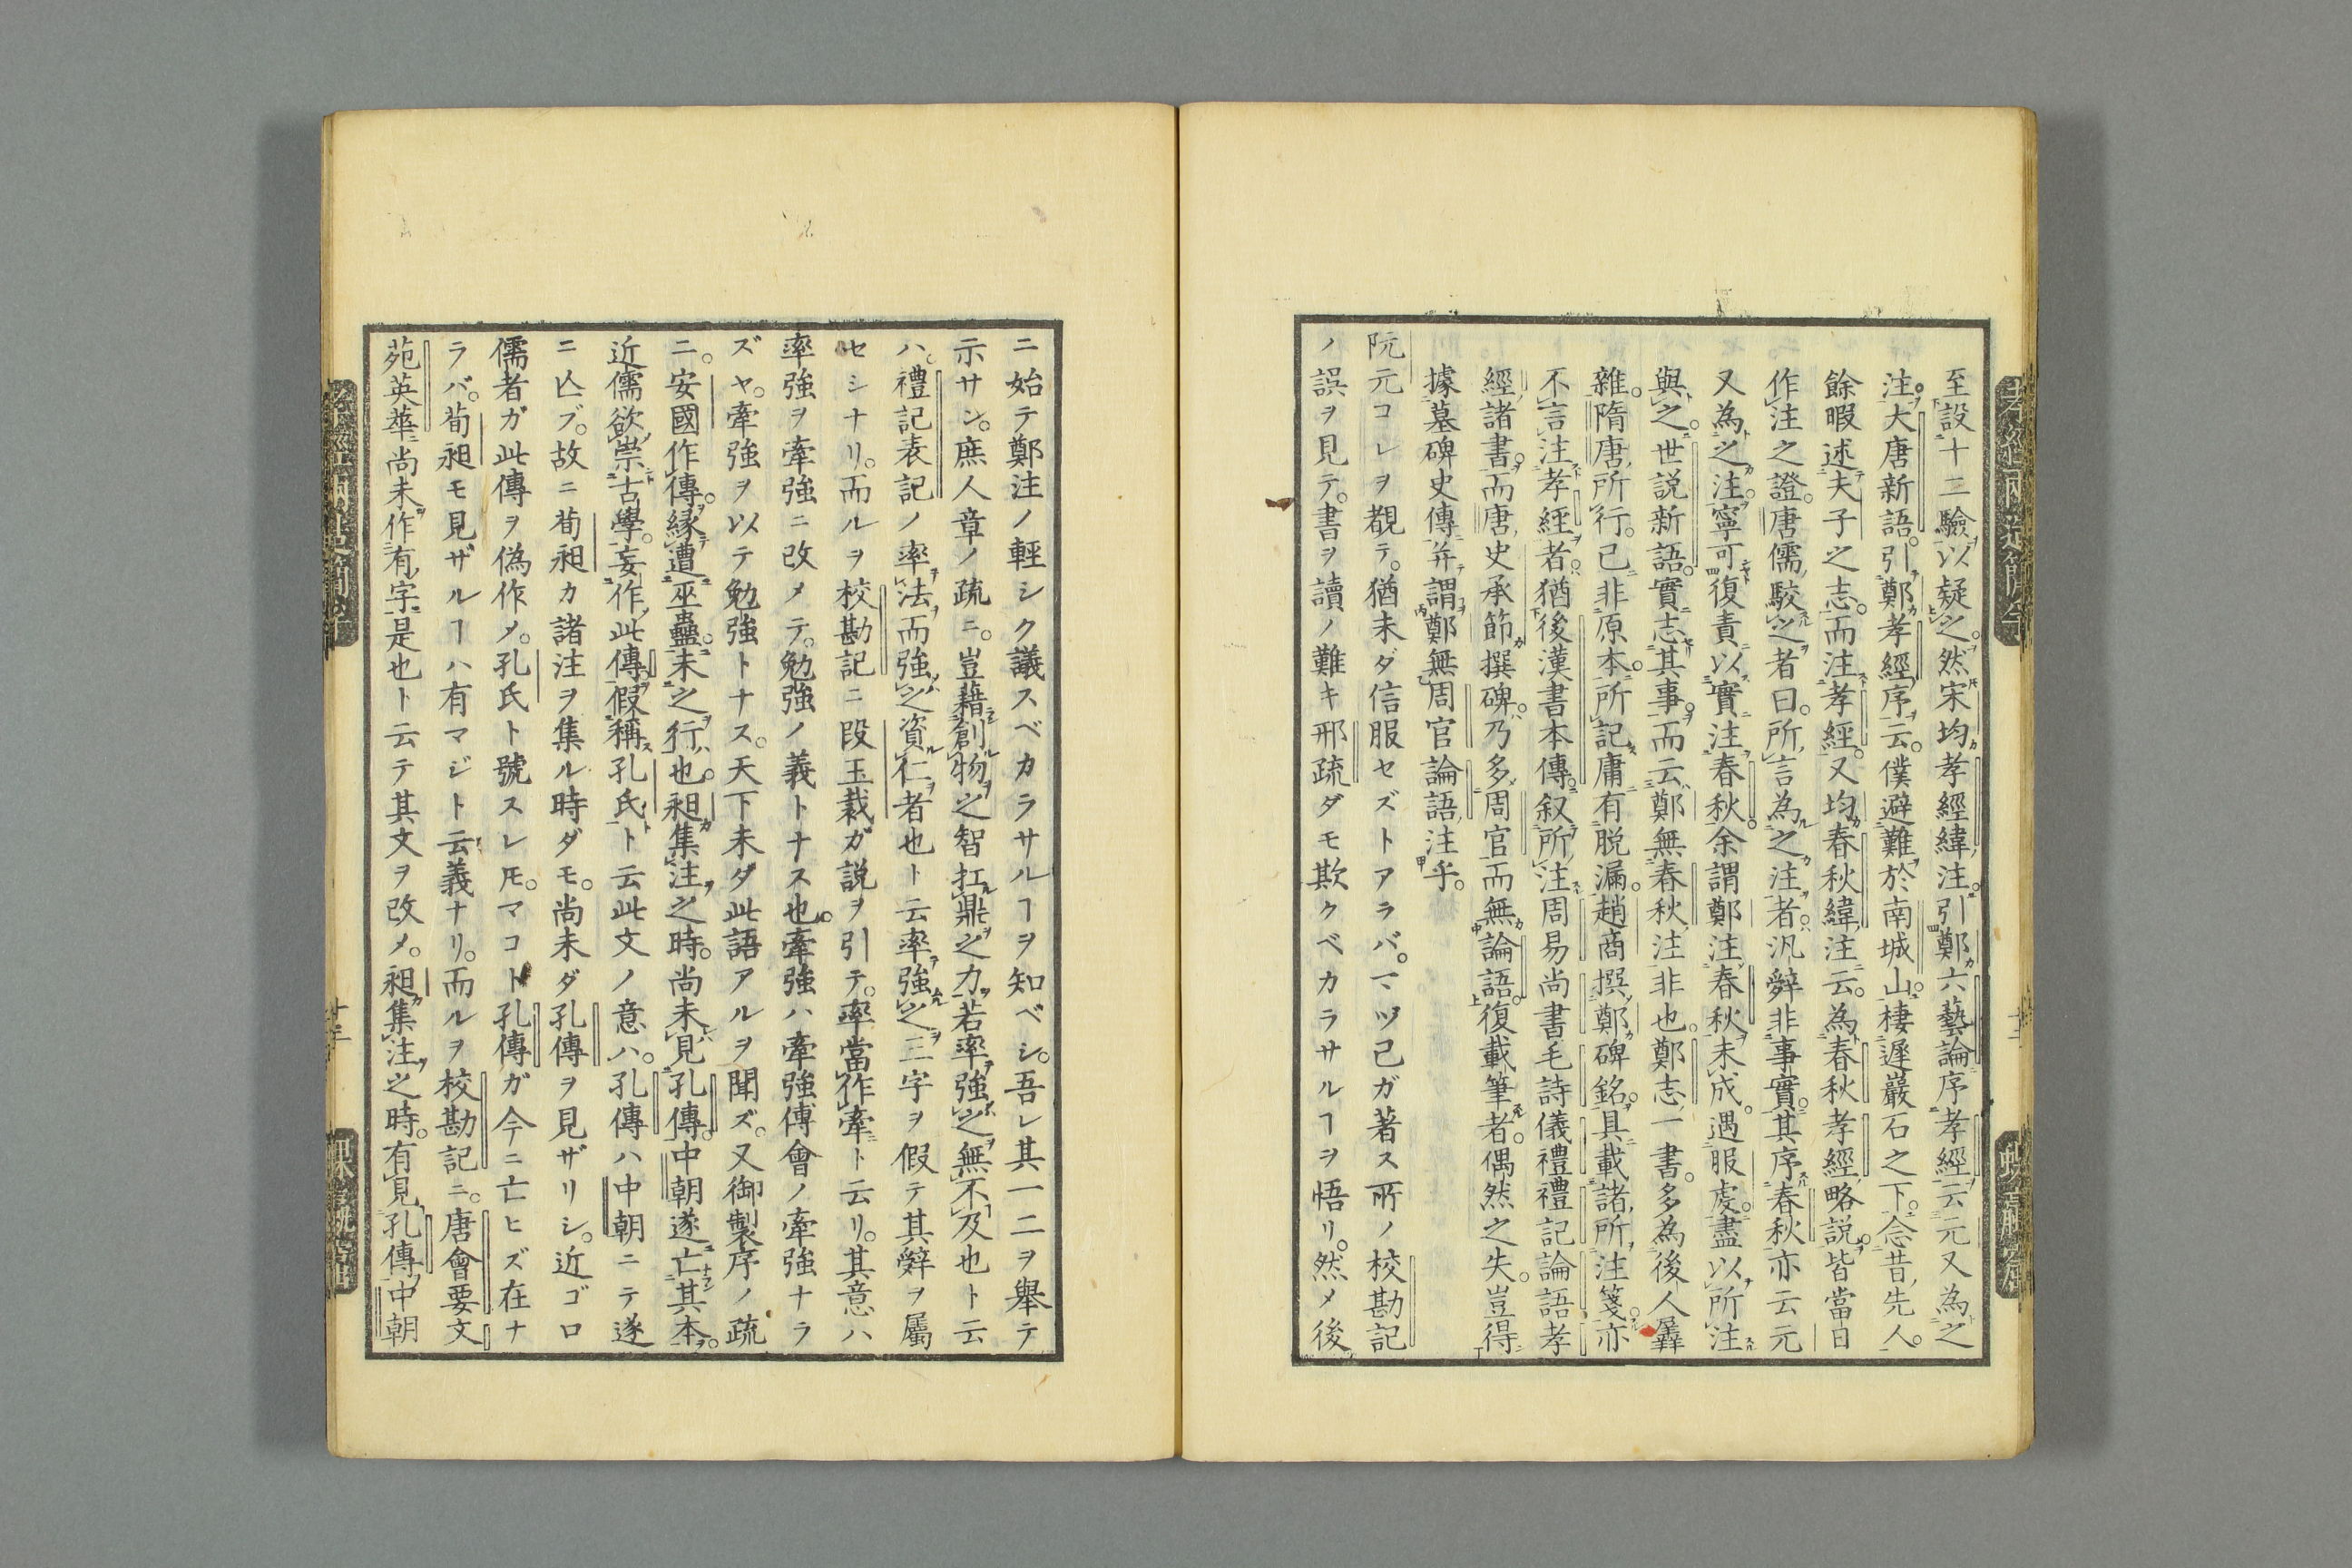 至設十二驗以疑之。然宋均孝經緯注。引鄭六藝論序孝經云元又為之
注。大唐新語。引鄭孝經序云。僕避難於南城山。棲遲巖石之下。念昔先人。
餘暇述夫子之志。而注孝經。又均春秋緯注云。為春秋孝經略説。皆當日
作注之證。唐儒駮之者曰。所言為之注者。汎辭非事實。其序春秋亦云元
又為之注。寧可復責以實注春秋。余謂鄭注春秋未成。遇服虔。盡以所注
與之。世説新語。實志其事。而云鄭無春秋注非也。鄭志一書。多為後人羼
雜。隋唐所行。已非原本。所記庸有脱漏。趙商撰鄭碑銘。具載諸所注箋。亦
不言注孝經者。猶後漢書本傳。叙所注周易尚書毛詩儀禮禮記論語孝
經諸書。而唐史承節撰碑。乃多周官而無論語。復載筆者。偶然之失。豈得
據墓碑史傳并謂鄭無周官論語注乎。
阮元コレヲ覩テ。猶未ダ信服セズトアラバ。マヅ己ガ著ス所ノ校勘記
ノ誤ヲ見テ。書ヲ讀ノ難キ邢疏ダモ欺クベカラサルヿヲ悟リ。然メ後
ニ始テ鄭注ノ輕シク議スベカラサルヿヲ知ベシ。吾レ其一二ヲ舉テ
示サン。庶人章ノ疏ニ。豈藉創物之智扛鼎之力若率強之無不及也ト云
ハ。禮記表記ノ率法而強之資仁者也ト云率強之三字ヲ假テ其辭ヲ屬
セシナリ。而ルヲ校勘記ニ段玉裁ガ説ヲ引テ。率當作牽ト云リ。其意ハ
率強ヲ牽強ニ改メテ。勉強ノ義トナス也。牽強ハ牽強傅會ノ牽強ナラ
ズヤ。牽強ヲ以テ勉強トナス。天下未ダ此語アルヲ聞ズ。又御製序ノ疏
ニ。安國作傳。縁遭巫蠱。未之行也。昶集注之時。尚未見孔傳。中朝遂亡其本。
近儒欲崇古學。妄作此傳。假稱孔氏ト云此文ノ意ハ。孔傳ハ中朝ニテ遂
ニ亾ブ。故ニ荀昶カ諸注ヲ集ル時ダモ。尚未ダ孔傳ヲ見ザリシ。近ゴロ
儒者ガ此傳ヲ偽作メ。孔氏ト號スレ𪜈。マコト孔傳ガ今ニ亡ヒズ在ナ
ラバ。荀昶モ見ザルヿハ有マジト云義ナリ。而ルヲ校勘記ニ。唐會要文
苑英華尚未作有。字是也ト云テ其文ヲ改メ。昶集注之時。有見孔傳中朝